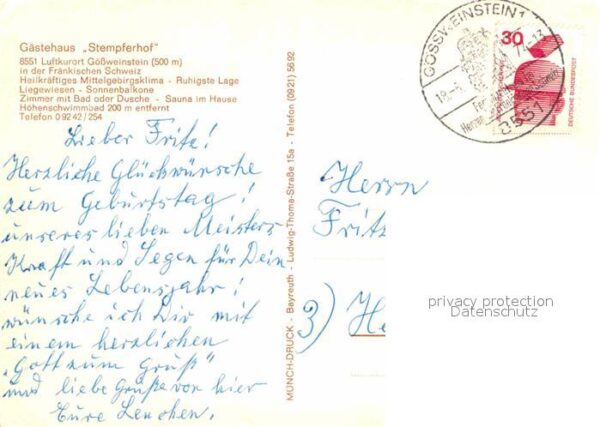 Gästehaus „Stempferhof"
8551 Luftkurort Gößweinstein (500 m)
in der Fränkischen Schweiz
Heilkräftiges Mittelgebirgsklima - Ruhigste Lage
Liegewiesen - Sonnenbalkone
Zimmer mit Bad oder Dusche - Sauna im Hause
Höhenschwimmbad 200 m entfernt
Telefon 0 92 42 / 254
Lieber Fritz!
Herzliche Glückwünsche
zum Geburtstag!
unseres lieben Meisters
Kraft und Segen für Dein
neues Lebensjahr!
wünsche ich Dir mit
einem herzlichen
„Gott zum Gruß"
und liebe Grüße von hier
Eure Lenchen.
MÜNCH-DRUCK - Bayreuth - Ludwig-Thoma-Straße 15a - Telefon (09 21) 56 92
GÖSSWEINSTEIN 1
8551
30
DEUTSCHE BUNDESPOST
Herrn
Fritz
3)
privacy protection
Datenschutz